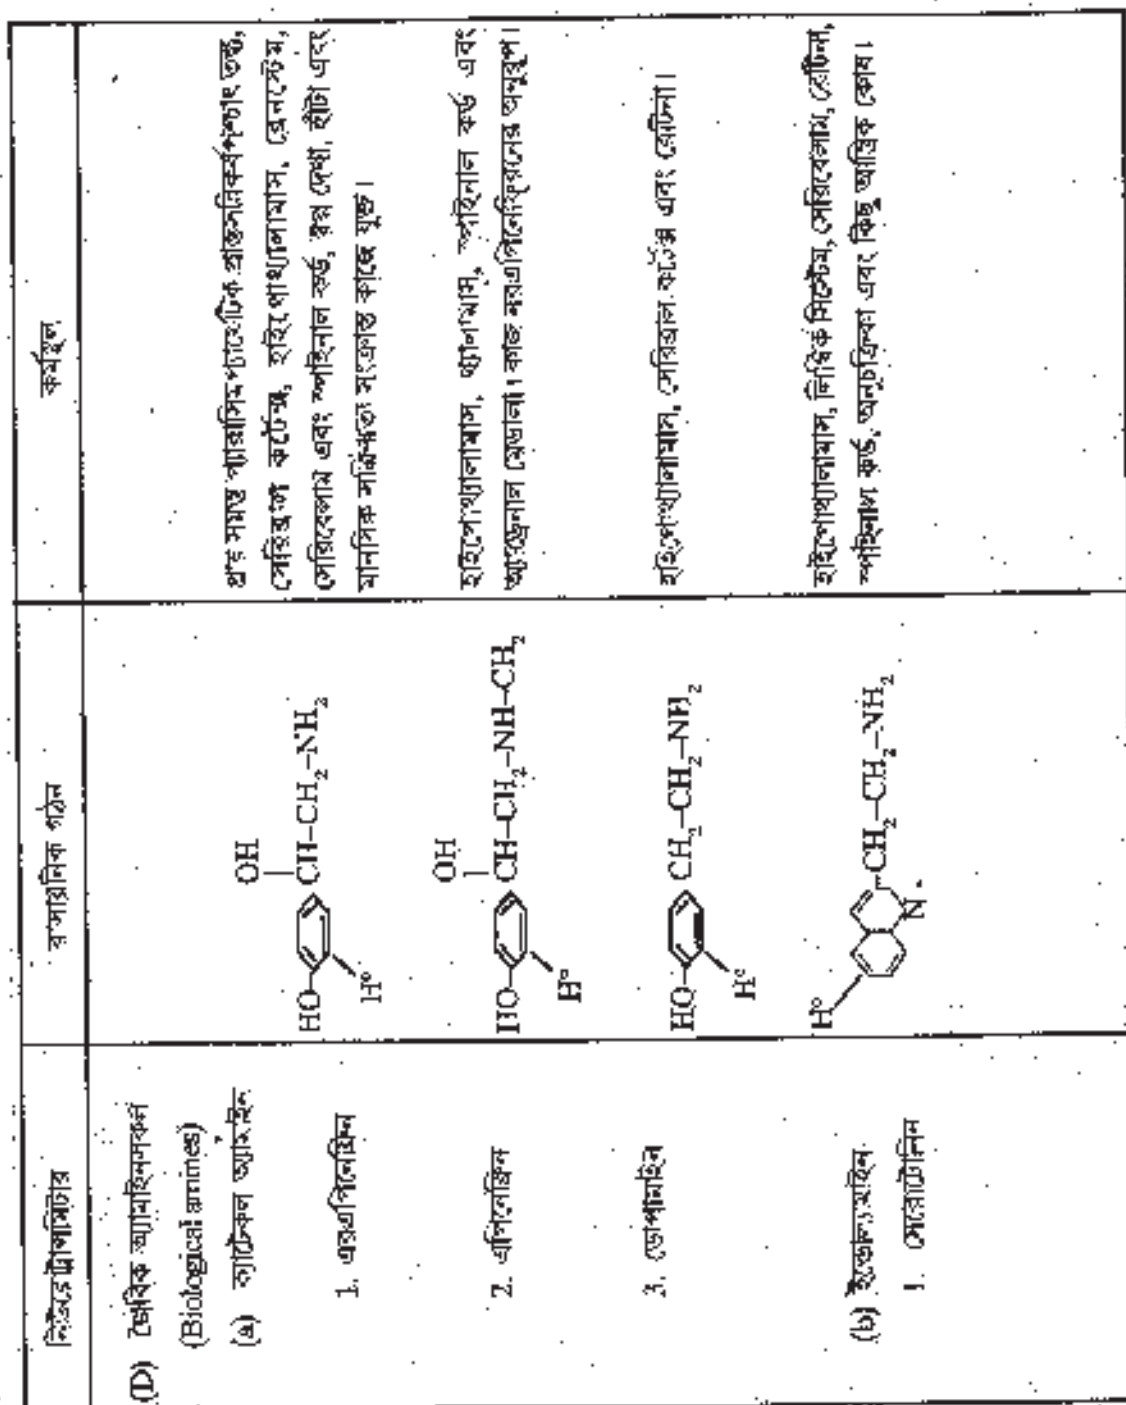 নিউরোট্রান্সমিটার
রাসায়নিক গঠন
কর্মস্থল
(D) জৈবিক অ্যামাইনসকল
(Biological amines)
(a) ক্যাটেকল অ্যামাইন
1. নরএপিনেফ্রিন
OH
CH–CH2–NH2
HO
HO
সমস্ত প্যারাসিমপ্যাথেটিক
সেরিব্রাল কর্টেক্স, হাইপোথ্যালামাস, ব্রেনস্টেম,
সেরিবেলাম এবং স্পাইনাল কর্ড, স্বপ্ন দেখা, হাঁটা এবং
মানসিক সক্রিয়তা সংক্রান্ত কাজে যুক্ত।
2. এপিনেফ্রিন
OH
CH–CH2–NH–CH2
HO
HO
হাইপোথ্যালামাস, থ্যালামাস, স্পাইনাল কর্ড এবং
অ্যাড্রেনাল মেডালা। কাজ নরএপিনেফ্রিনের অনুরূপ।
3. ডোপামাইন
CH2–CH2–NH2
HO
HO
হাইপোথ্যালামাস, সেরিব্রাল কর্টেক্স এবং রেটিনা।
(b) ইন্ডোল্যামাইন
1. সেরোটোনিন
HO
CH2–CH2–NH2
N
হাইপোথ্যালামাস, লিম্বিক সিস্টেম, সেরিবেলাম, রেটিনা,
স্পাইনাল কর্ড, অনুচক্রিকা এবং কিছু আন্ত্রিক কোষ।